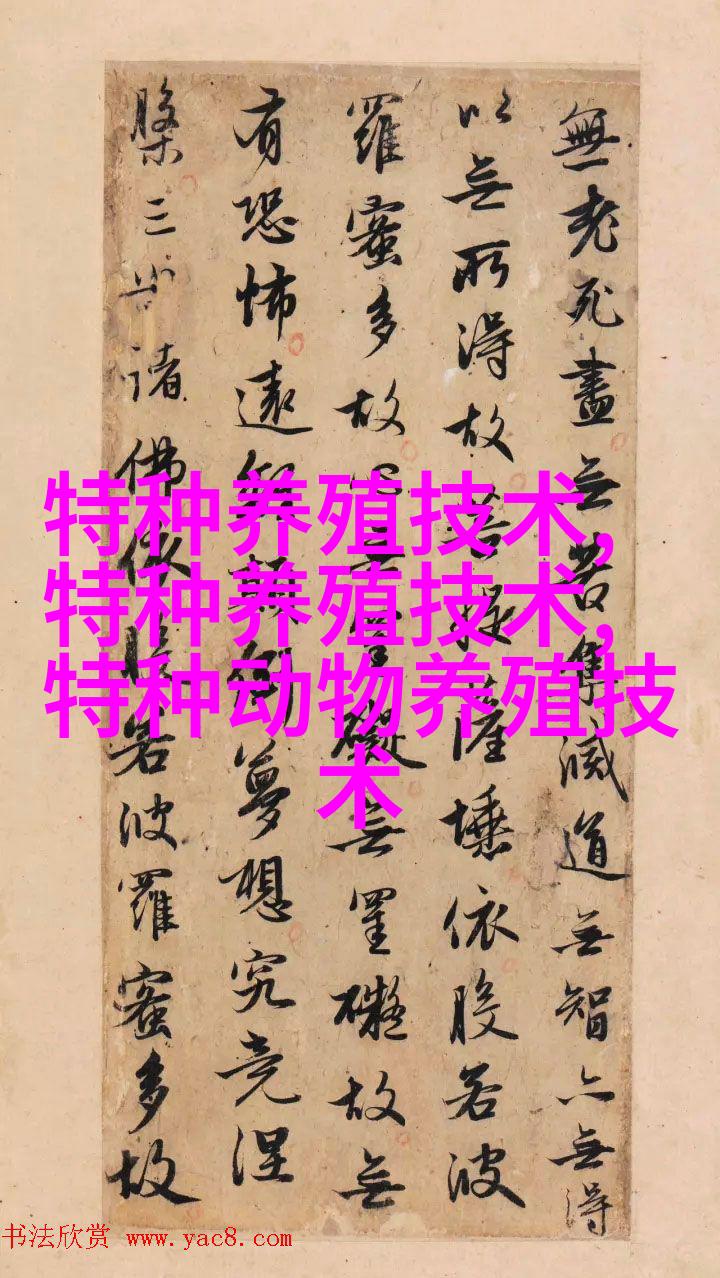 無老死盡无苦集滅道无智亦无得
以无所得故菩提薩埵依般若波
羅蜜多故心无罣礙无罣礙故无
有恐怖遠離顛倒夢想究竟涅
槃三世諸佛依般若波羅蜜多故
特种养殖技术,
特种养殖技术,
特种动物养殖技
术
书法欣赏 www.yac8.com